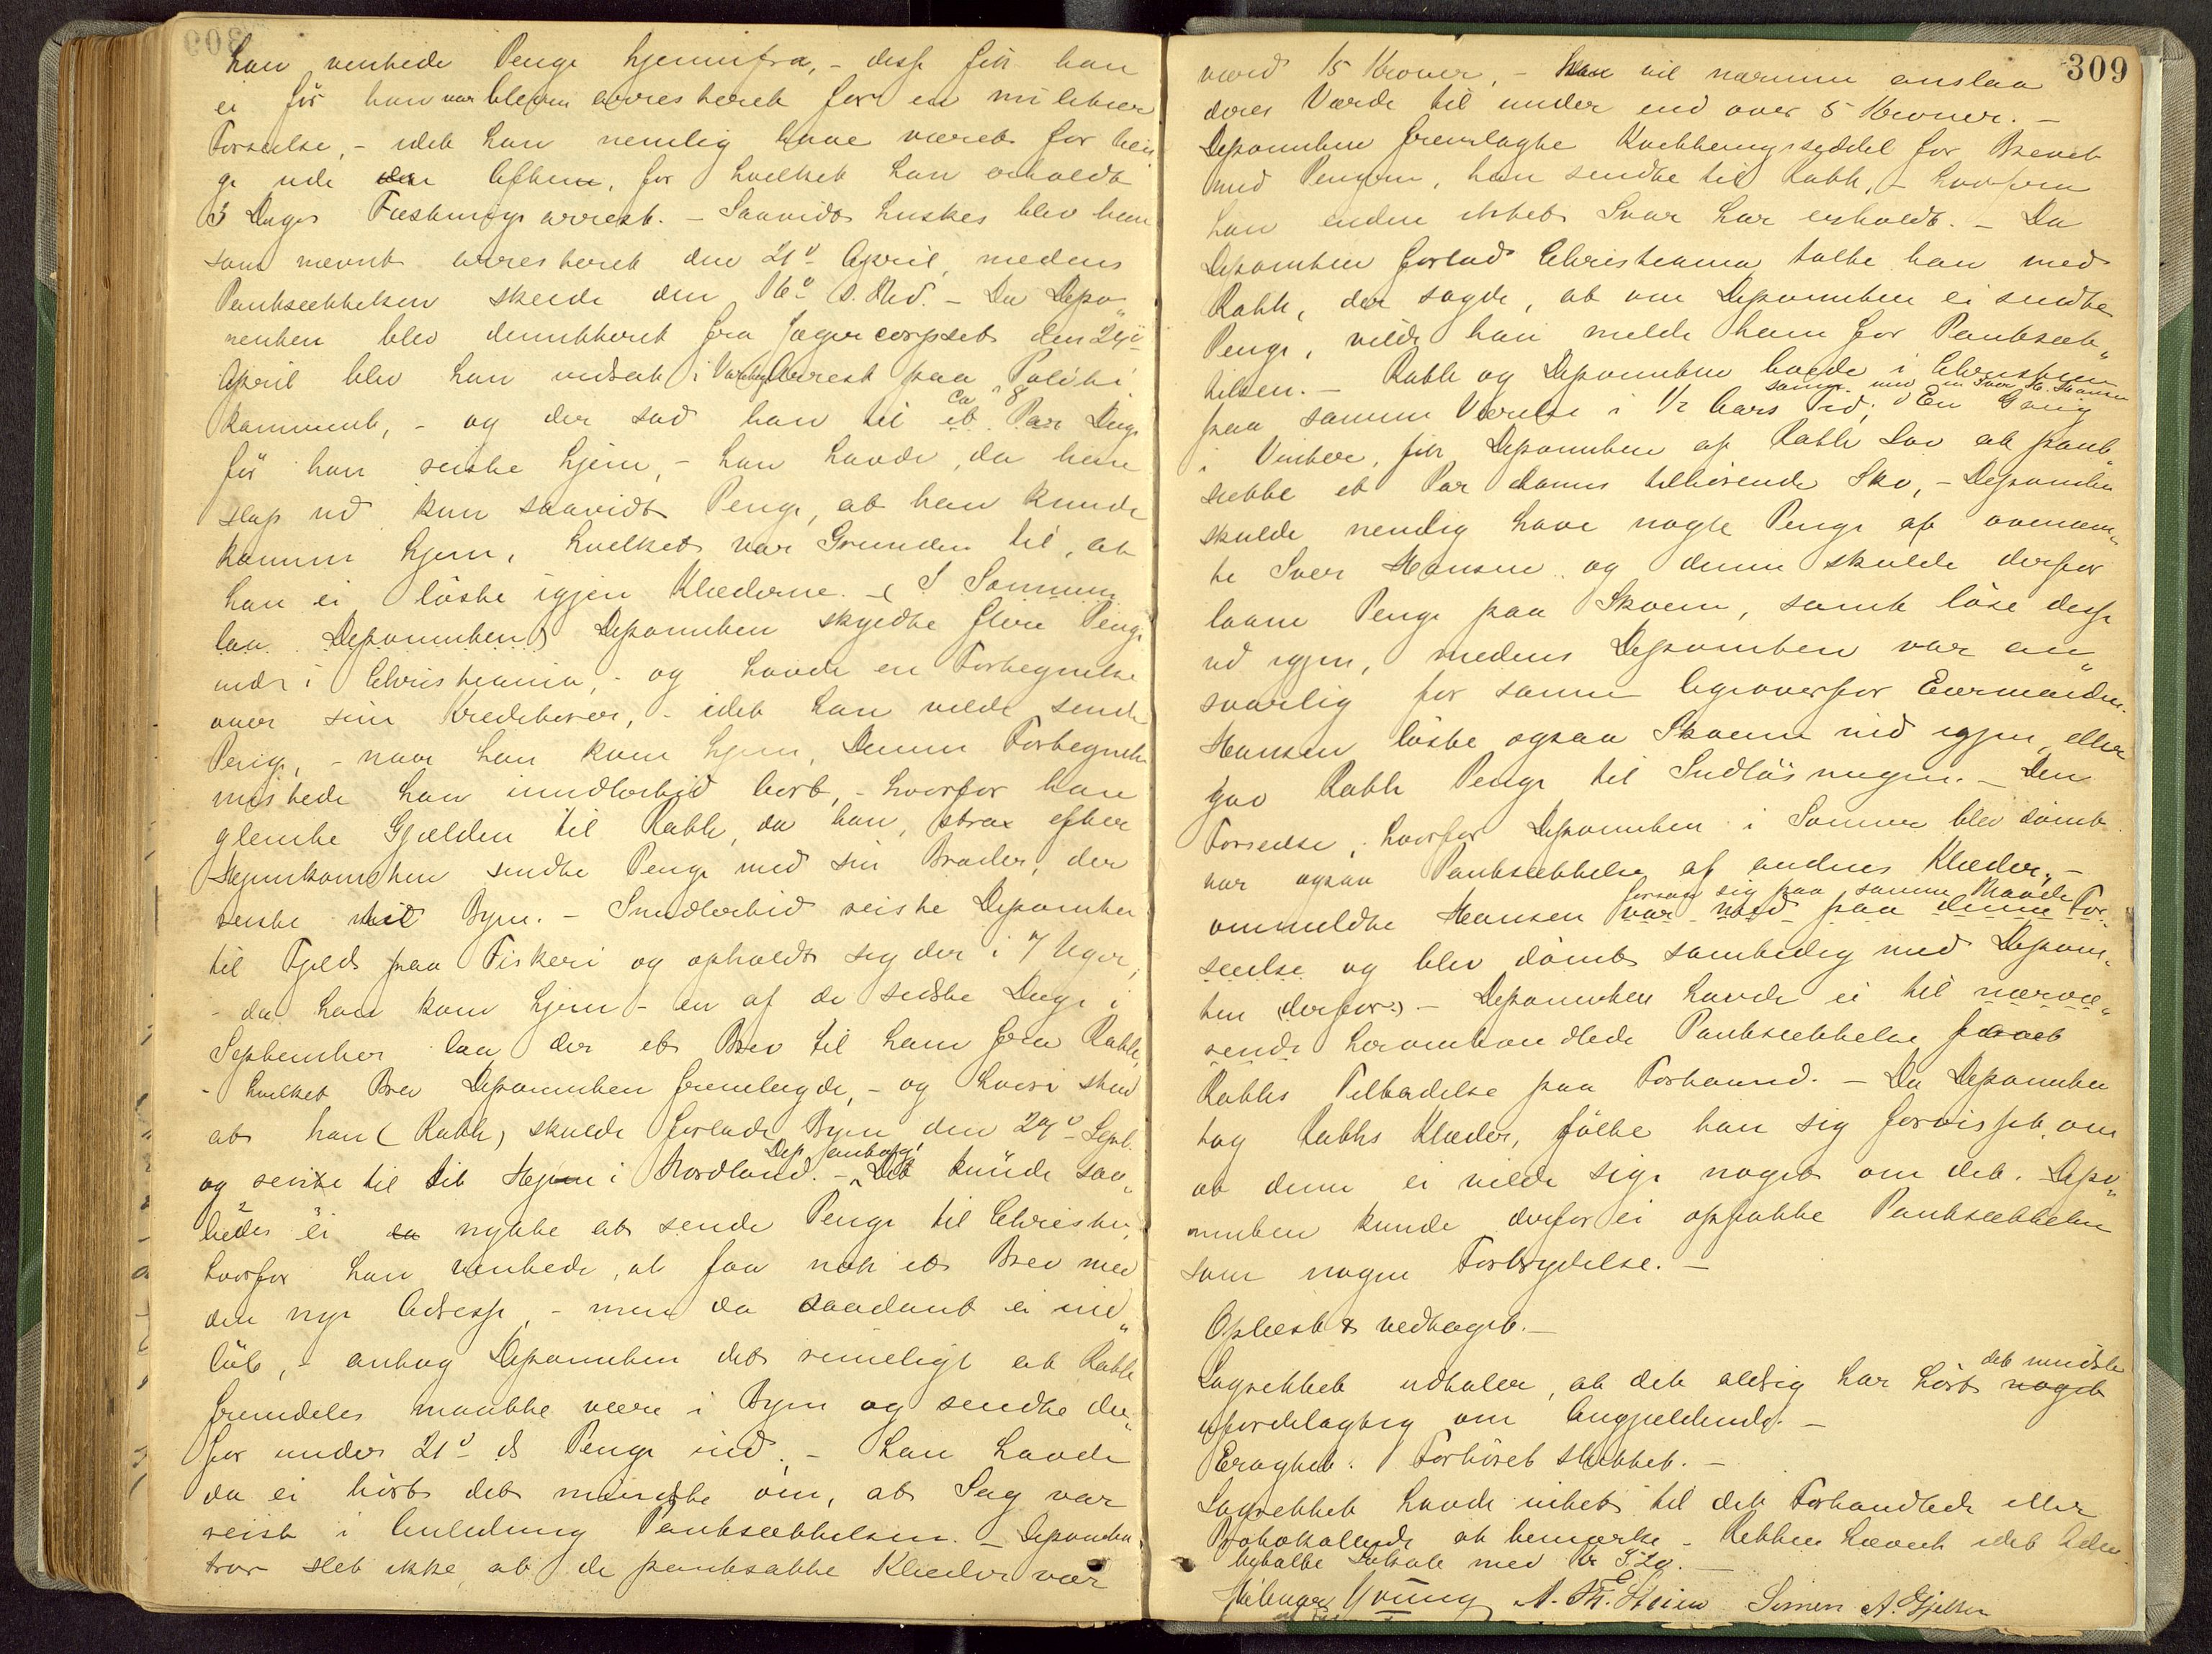 han ventede Penge hjemmefra, - disse fik han
ei før han var bleven arresteret for en militær
Forseelse, - idet han nemlig have været for læn
ge ude om Aftenen, for hvilket han erholdt
3 Dages Fæstningsarrest. - Saavidt huskes blev han
som nævnt arresteret den 21de April, medens
Pantsættelsen skeede den 16de s. Md. - Da Depo„
nenten blev dimitteret fra Jægercorpset den 24de
April blev han indsat i Varetægtsarrest paa Politi
kammeret, - og der sad han til ca 8 et Par Dage
før han reiste hjem, - han havde, da han
slap ud kun saavidt Penge, at han kunde
komme hjem, hvilket var Grunden til, at
han ei løste igjen Klæderne. - (I Sommer
laa Deponenten) Deponenten skyldte flere Penge
inde i Christiania, - og havde en Fortegnelse
over sine Kreditorer, - idet han vilde sende
Penge, - naar han kom hjem, Denne Fortegnelse
mistede han imidlertid bort, - hvorfor han
glemte Gjælden til Rabb, da han, strax efter
Hjemkomsten sendte Penge med sin Broder, der
reiste til Byen. - Imidlertid reiste Deponenten
til Fjelds paa Fiskeri og opholdt sig der i 7 Uger,
- da han kom hjem - en af de sidste Dage i
September laa der et Brev til ham fra Rabb,
- hvilket Brev Deponenten fremlagde, - og hvori stod
at han (Rabb) skulde forlade Byen den 27de Sept.
og reise til sit Hjem i Nordland. - Dep. antog! Det kunde saa„
ledes ei da nytte at sende Penge til Christia,
hvorfor han ventede, at faa nok et Brev med
den nye Adresse, - men da saadant ei ind„
løb, - antog Deponenten det rimeligt at Rabb
fremdeles maatte være i Byen og sendte der„
for under 21de ds Penge ind, - han havde
da ei hørt det mindste om, at Sag var
reist i Anledning Pantsættelsen. - Deponenten
tror slet ikke, at de pantsatte Klæder var
309
værd 15 Kroner, - han vil nærmere anslaa
deres Værde til under end over 5 Kroner. -
Deponenten fremlagte Kvitteringsseddel for Brevet
med Pengene, han sendte til Rabb, - hvorfra
han endnu intet Svar har erholdt. - Da
Deponenten forlod Christiania talte han med
Rabb, der sagde, at om Deponenten ei sendte
Penge, vilde han melde ham for Pantsæt„
telsen. - Rabb og Deponenten boede i Christian
paa samme Værelse i 1/2 Aars Tid, sammen med en Iver H. Hansen En Gang
i Vinter, fik Deponenten af Rabb Lov at pant„
sætte et Par denne tilhørende Sko, - Deponenten
skulde nemlig have nogle Penge af ovennævn„
te Iver Hansen og denne skulde derfor
laane Penge paa Skoene, samt løse disse
ud igjen, medens Deponenten var an„
svarlig for samme ligeoverfor Eiermanden.
Hansen løste ogsaa Skoene ud igjen, eller
gav Rabb Penge til Indløsningen. - Den
Forseelse, hvorfor Deponenten i Sommer blev dømt
var ogsaa Pantsættelse af andres Klæder, -
ommeldte Hansen forsaa sig paa samme Maade var med paa denne For„
seelse og blev dømt samtidig med Deponen„
ten (derfor) - Deponenten havde ei til nærvæ„
rende heromhandlede Pantsættelse faaet
Rabbs Tilladelse paa Forhaand. - Da Deponenten
tog Rabbs Klæder, følte han sig forvisset om
at denne ei vilde sige noget om det. Depo„
nenten kunde derfor ei opfatte Pantsættelsen
som nogen Forbrydelse. -
Oplæst & vedtaget. -
Lagrettet udtaler, at det aldrig har hørt det mindste noget
ufordelagtig om Angjældende. -
Fragten. Forhøret sluttet. -
Lagrettet havde intet til det Forhandlede eller
Protokollerede at bemærke - Retten hævet idet Aden
betalte Lokale med Kr 5.20. -
Hilmar Young A. Th. Steien Simen A. Gjelten